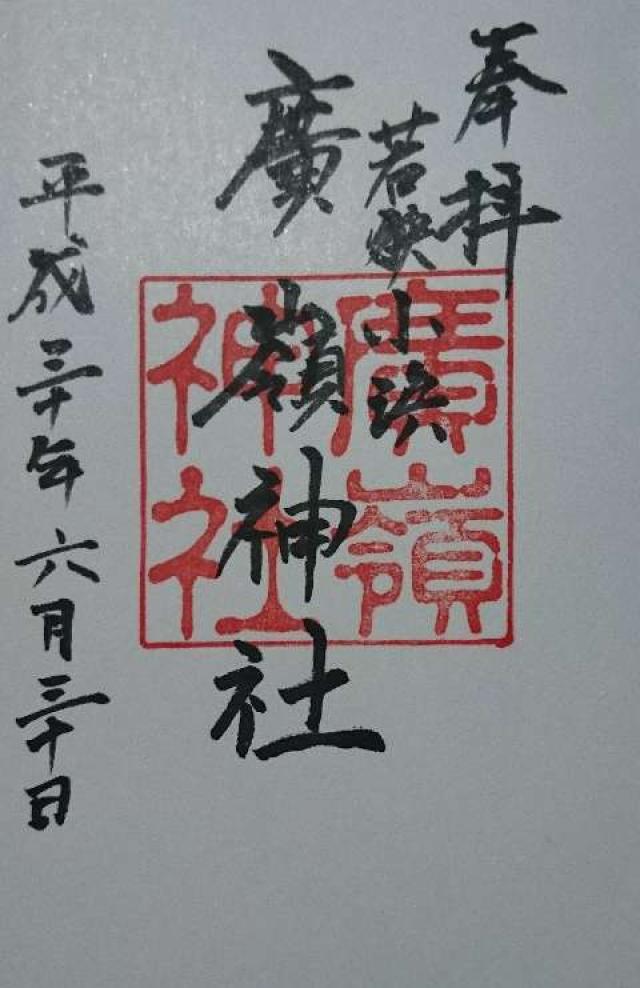 奉拝
若狭小浜
廣嶺神社
廣嶺
神社
平成三十年六月三十日